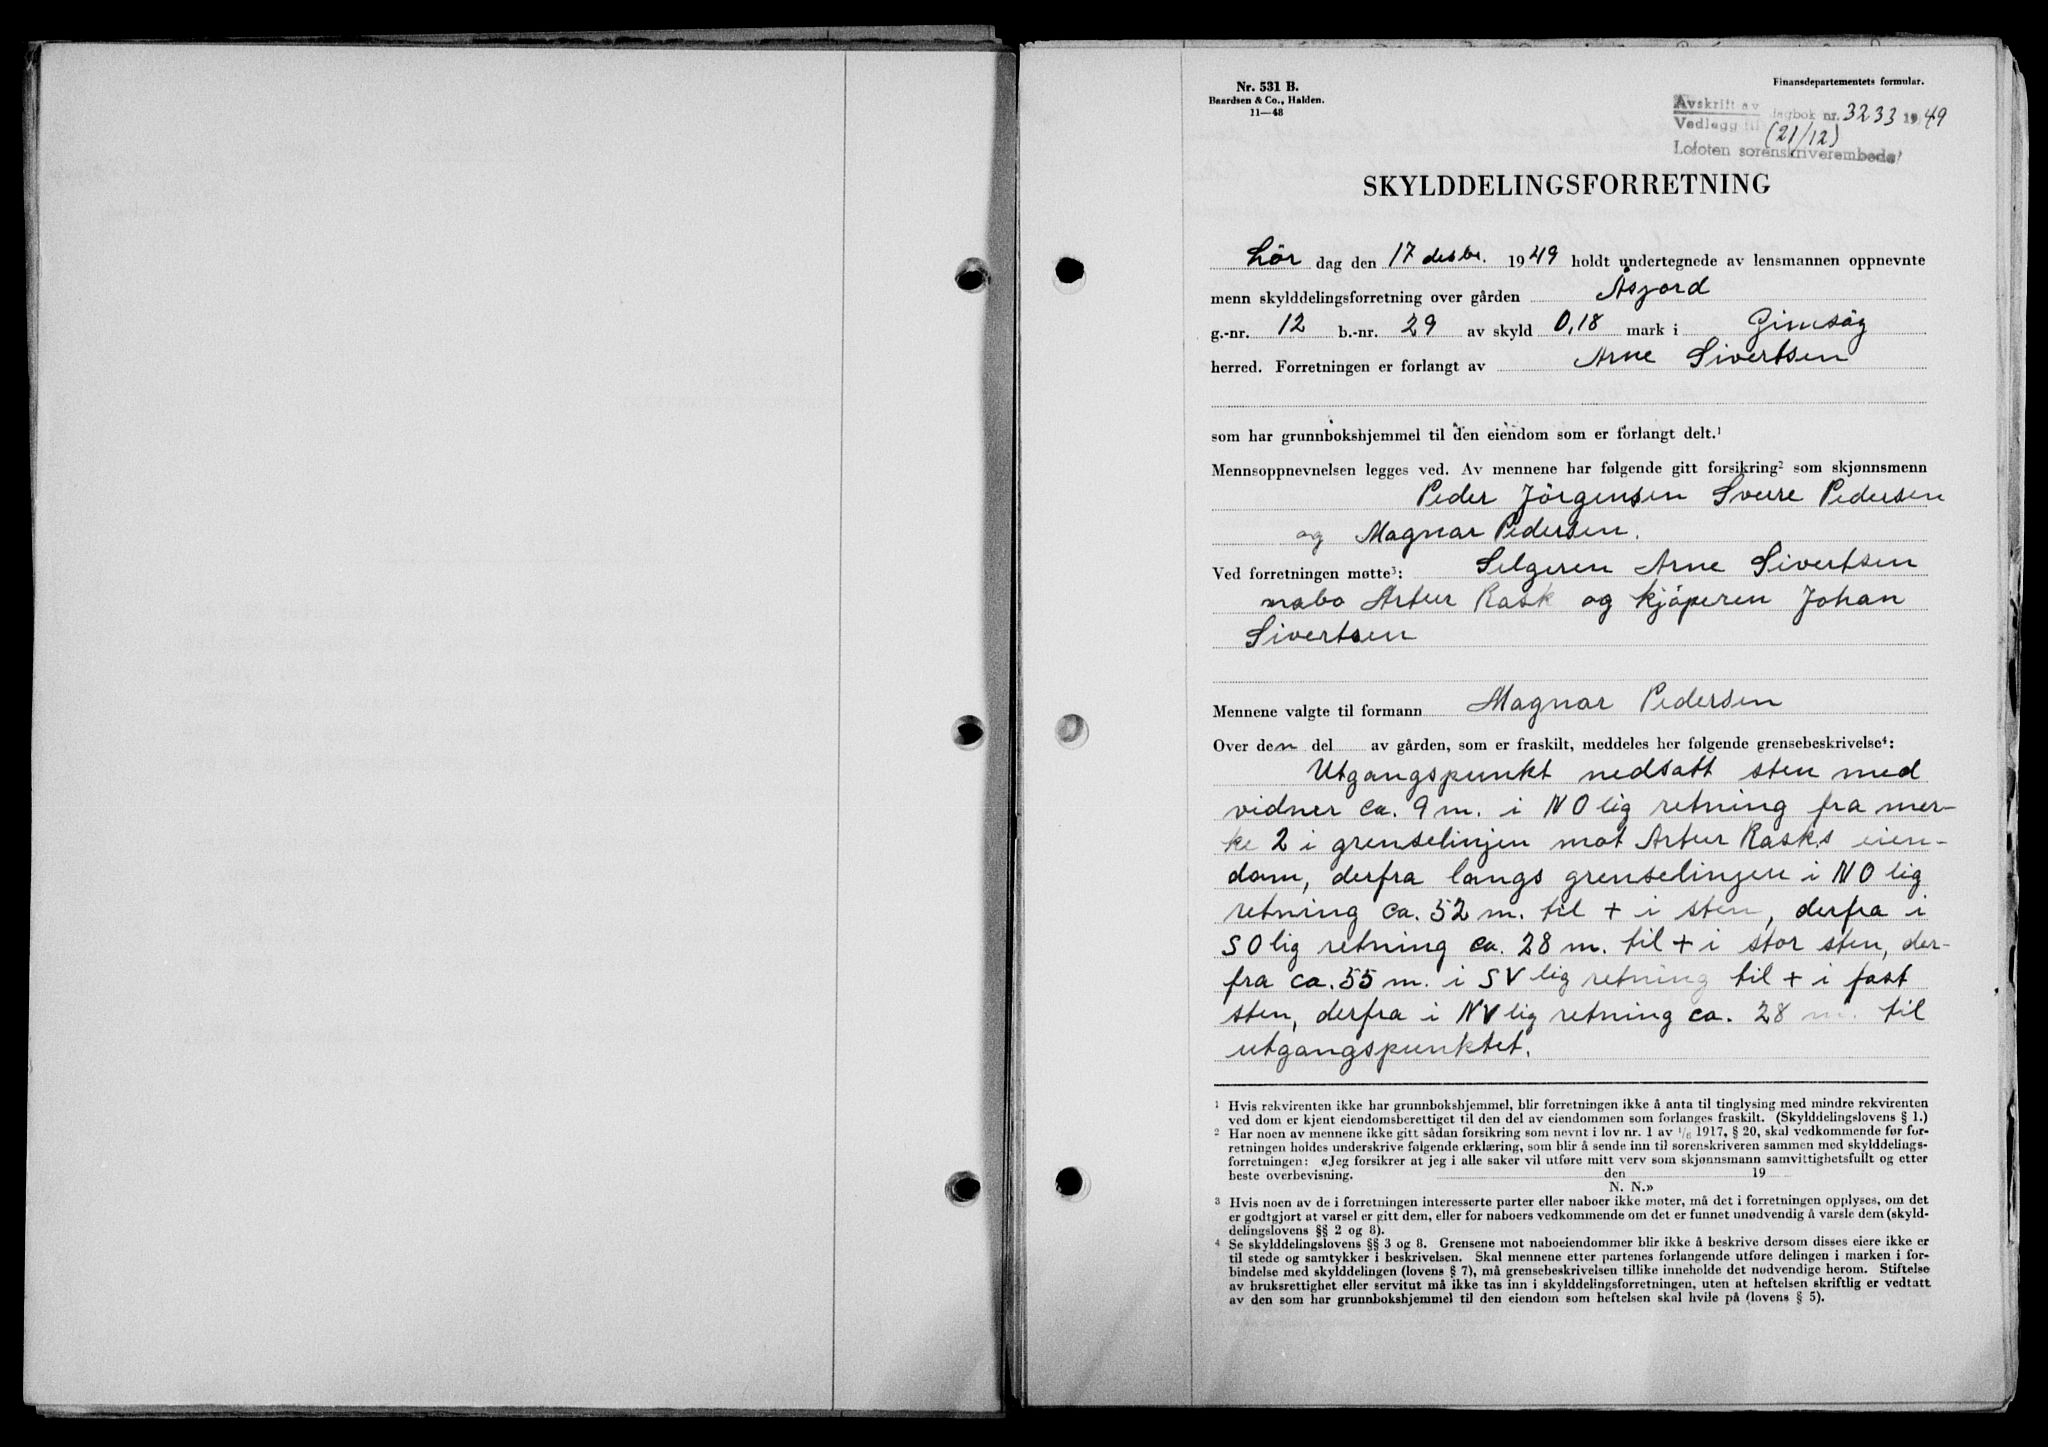 Nr. 531 B.
Baardsen & Co., Halden.
11—48
Finansdepartementets formular.
Avskrift av
Vedlegg til dagbok nr. 3233 1949
(21/12)
Lofoten sorenskriverembede
SKYLDDELINGSFORRETNING
Lör dag den 17 desbr. 1949 holdt undertegnede av lensmannen oppnevnte
menn skylddelingsforretning over gården Åsjord
g.-nr. 12 b.-nr. 29 av skyld 0,18 mark i Gimsöy
herred. Forretningen er forlangt av Arne Sivertsen
som har grunnbokshjemmel til den eiendom som er forlangt delt.¹
Mennsoppnevnelsen legges ved. Av mennene har følgende gitt forsikring² som skjønnsmenn
Peder Jörgensen Sverre Pedersen
og Magnar Pedersen.
Ved forretningen møtte³: Selgeren Arne Sivertsen
nabo Artur Rask og kjöperen Johan
Sivertsen
Mennene valgte til formann Magnar Pedersen
Over den del av gården, som er fraskilt, meddeles her følgende grensebeskrivelse⁴:
Utgangspunkt nedsatt sten med
vidner ca. 9 m. i NO lig retning fra mer-
ke 2 i grenselinjen mot Artur Rasks eien-
dom, derfra langs grenselinjen i NO lig
retning ca. 52 m. til + i sten, derfra i
SO lig retning ca. 28 m. til + i stor sten, der-
fra ca. 55 m. i SV lig retning til + i fast
sten, derfra i NV lig retning ca. 28 m. til
utgangspunktet.
¹ Hvis rekvirenten ikke har grunnbokshjemmel, blir forretningen ikke å anta til tinglysing med mindre rekvirenten
ved dom er kjent eiendomsberettiget til den del av eiendommen som forlanges fraskilt. (Skylddelingslovens § 1.)
² Har noen av mennene ikke gitt sådan forsikring som nevnt i lov nr. 1 av 1/6 1917, § 20, skal vedkommende før for-
retningen holdes underskrive følgende erklæring, som blir å sende inn til sorenskriveren sammen med skylddelings-
forretningen: «Jeg forsikrer at jeg i alle saker vil utføre mitt verv som skjønnsmann samvittighetsfullt og etter
beste overbevisning. den 19
N. N.»
³ Hvis noen av de i forretningen interesserte parter eller naboer ikke møter, må det i forretningen opplyses, om det
er godtgjort at varsel er gitt dem, eller for naboers vedkommende om det er funnet unødvendig å varsle dem (skyld-
delingslovens §§ 2 og 8).
⁴ Se skylddelingslovens §§ 3 og 8. Grensene mot naboeiendommer blir ikke å beskrive dersom disses eiere ikke er
til stede og samtykker i beskrivelsen. Skal mennene etter partenes forlangende utføre delingen i marken i for-
bindelse med skylddelingen (lovens § 7), må grensebeskrivelsen tillike inneholde det nødvendige herom. Stiftelse
av bruksrettighet eller servitut må ikke tas inn i skylddelingsforretningen, uten at heftelsen skriftlig er vedtatt
av den som har grunnbokshjemmel til den eiendom som heftelsen skal hvile på (lovens § 5).